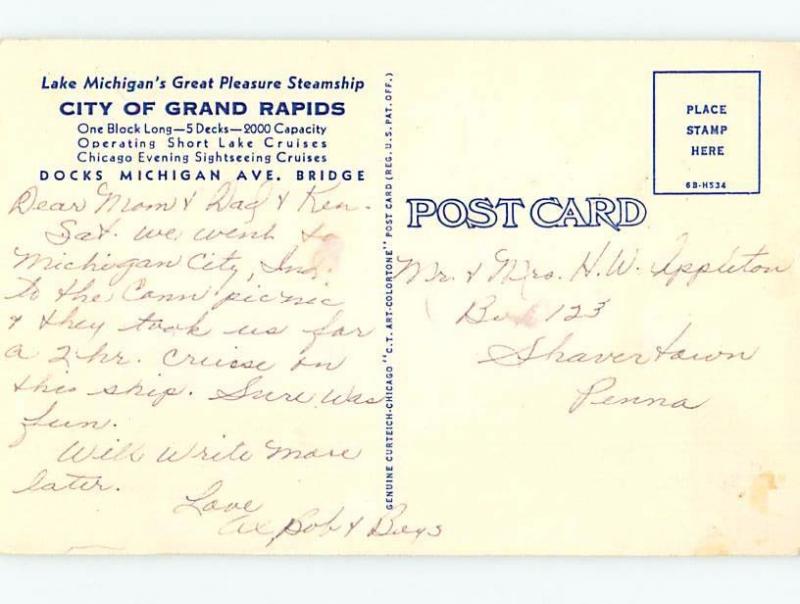 Lake Michigan's Great Pleasure Steamship
CITY OF GRAND RAPIDS
One Block Long—5 Decks—2000 Capacity
Operating Short Lake Cruises
Chicago Evening Sightseeing Cruises
DOCKS MICHIGAN AVE. BRIDGE
Dear Mom & Dad & Ken.
Sat. we went to
Michigan City, Ind.
to the Conn picnic
& they took us for
a 2 hr. cruise on
this ship. Sure was
fun.
Will write more
later.
Love
Bob & Boys
GENUINE CURTEICH-CHICAGO "C.T. ART-COLORTONE" POST CARD (REG. U.S. PAT. OFF.)
PLACE
STAMP
HERE
6B-H534
POST CARD
Mr. & Mrs. H. W. Appleton
Box 123
Shavertown
Penna